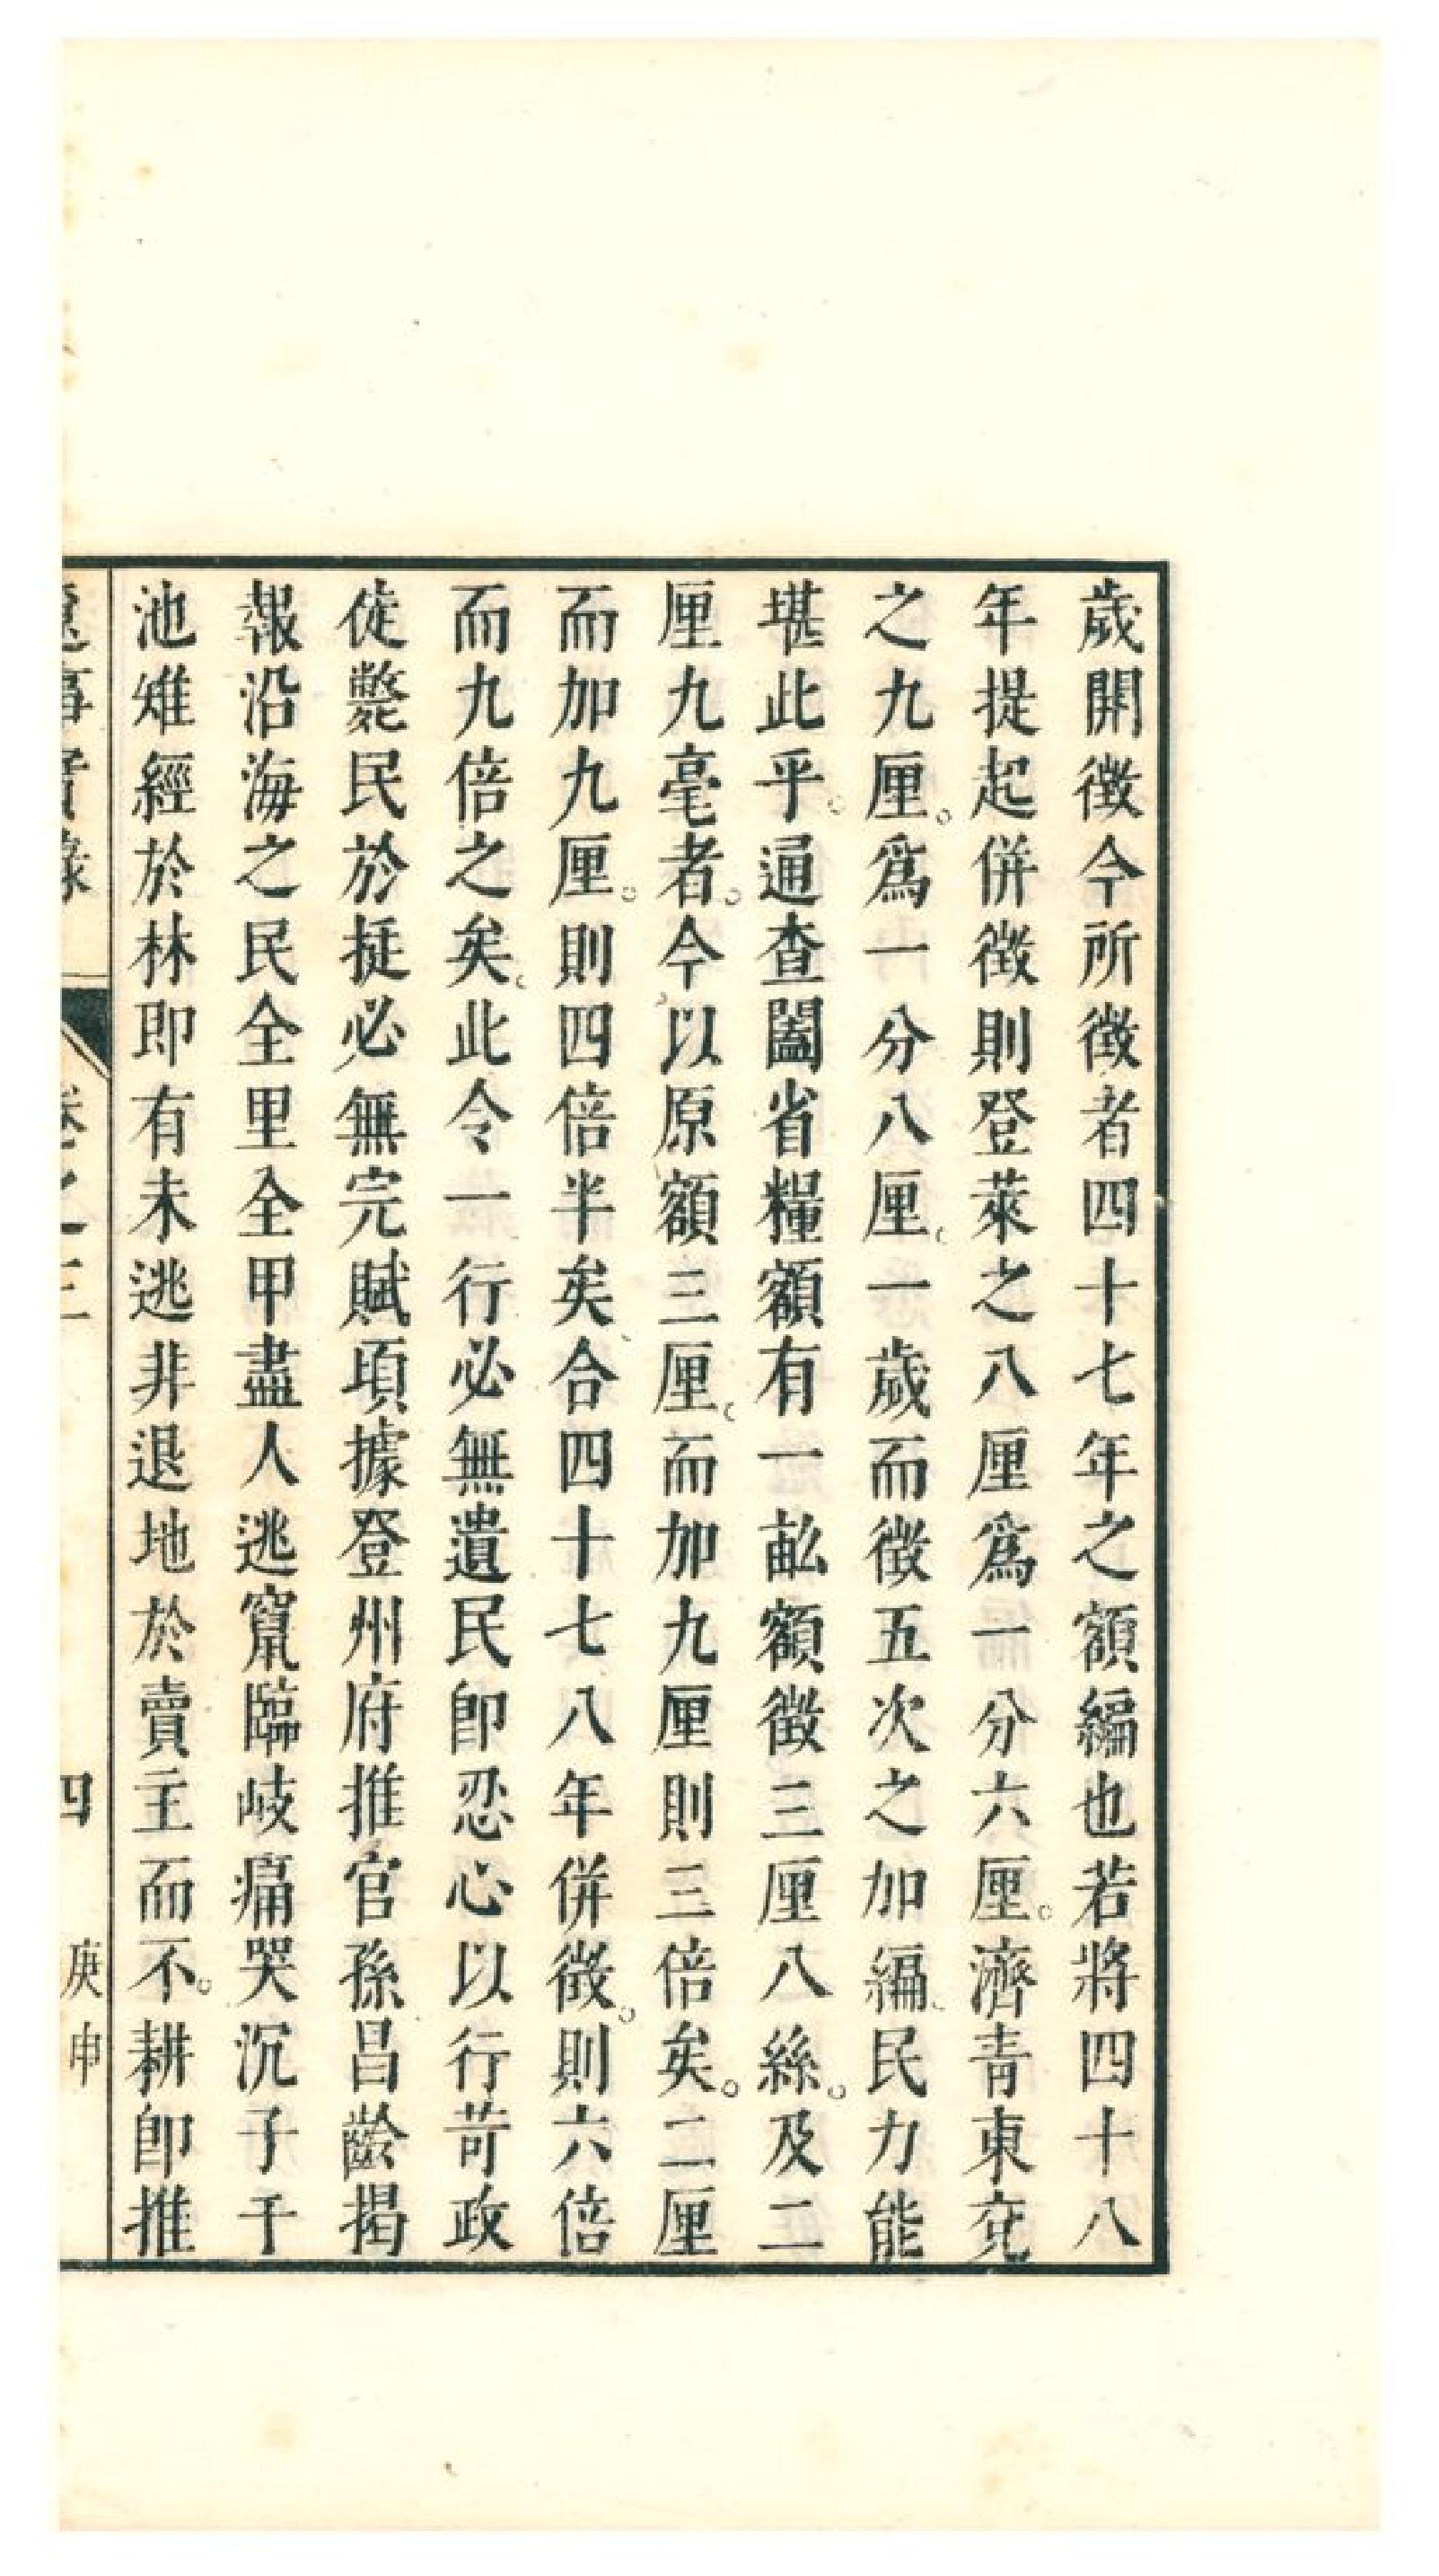 歲開徵今所徵者四十七年之額編也若將四十八
年提起併徵則登萊之八厘爲一分六厘。濟青東兗
之九厘。爲一分八厘。一歲而徵五次之加編。民力能
堪此乎。通查闔省糧額有一畝額徵三厘八絲。及二
厘九毫者。今以原額三厘。而加九厘則三倍矣。二厘
而加九厘。則四倍半矣、合四十七八年併徵。則六倍
而九倍之矣。此令一行必無遺民卽忍心以行苛政
徒斃民於挺必無完賦頃據登州府推官孫昌齡揭
報沿海之民全里全甲盡人逃竄臨岐痛哭沉子于
池雉經於林即有未逃非退地於賣主而不。耕卽推
事實錄 卷之三 四 庚申